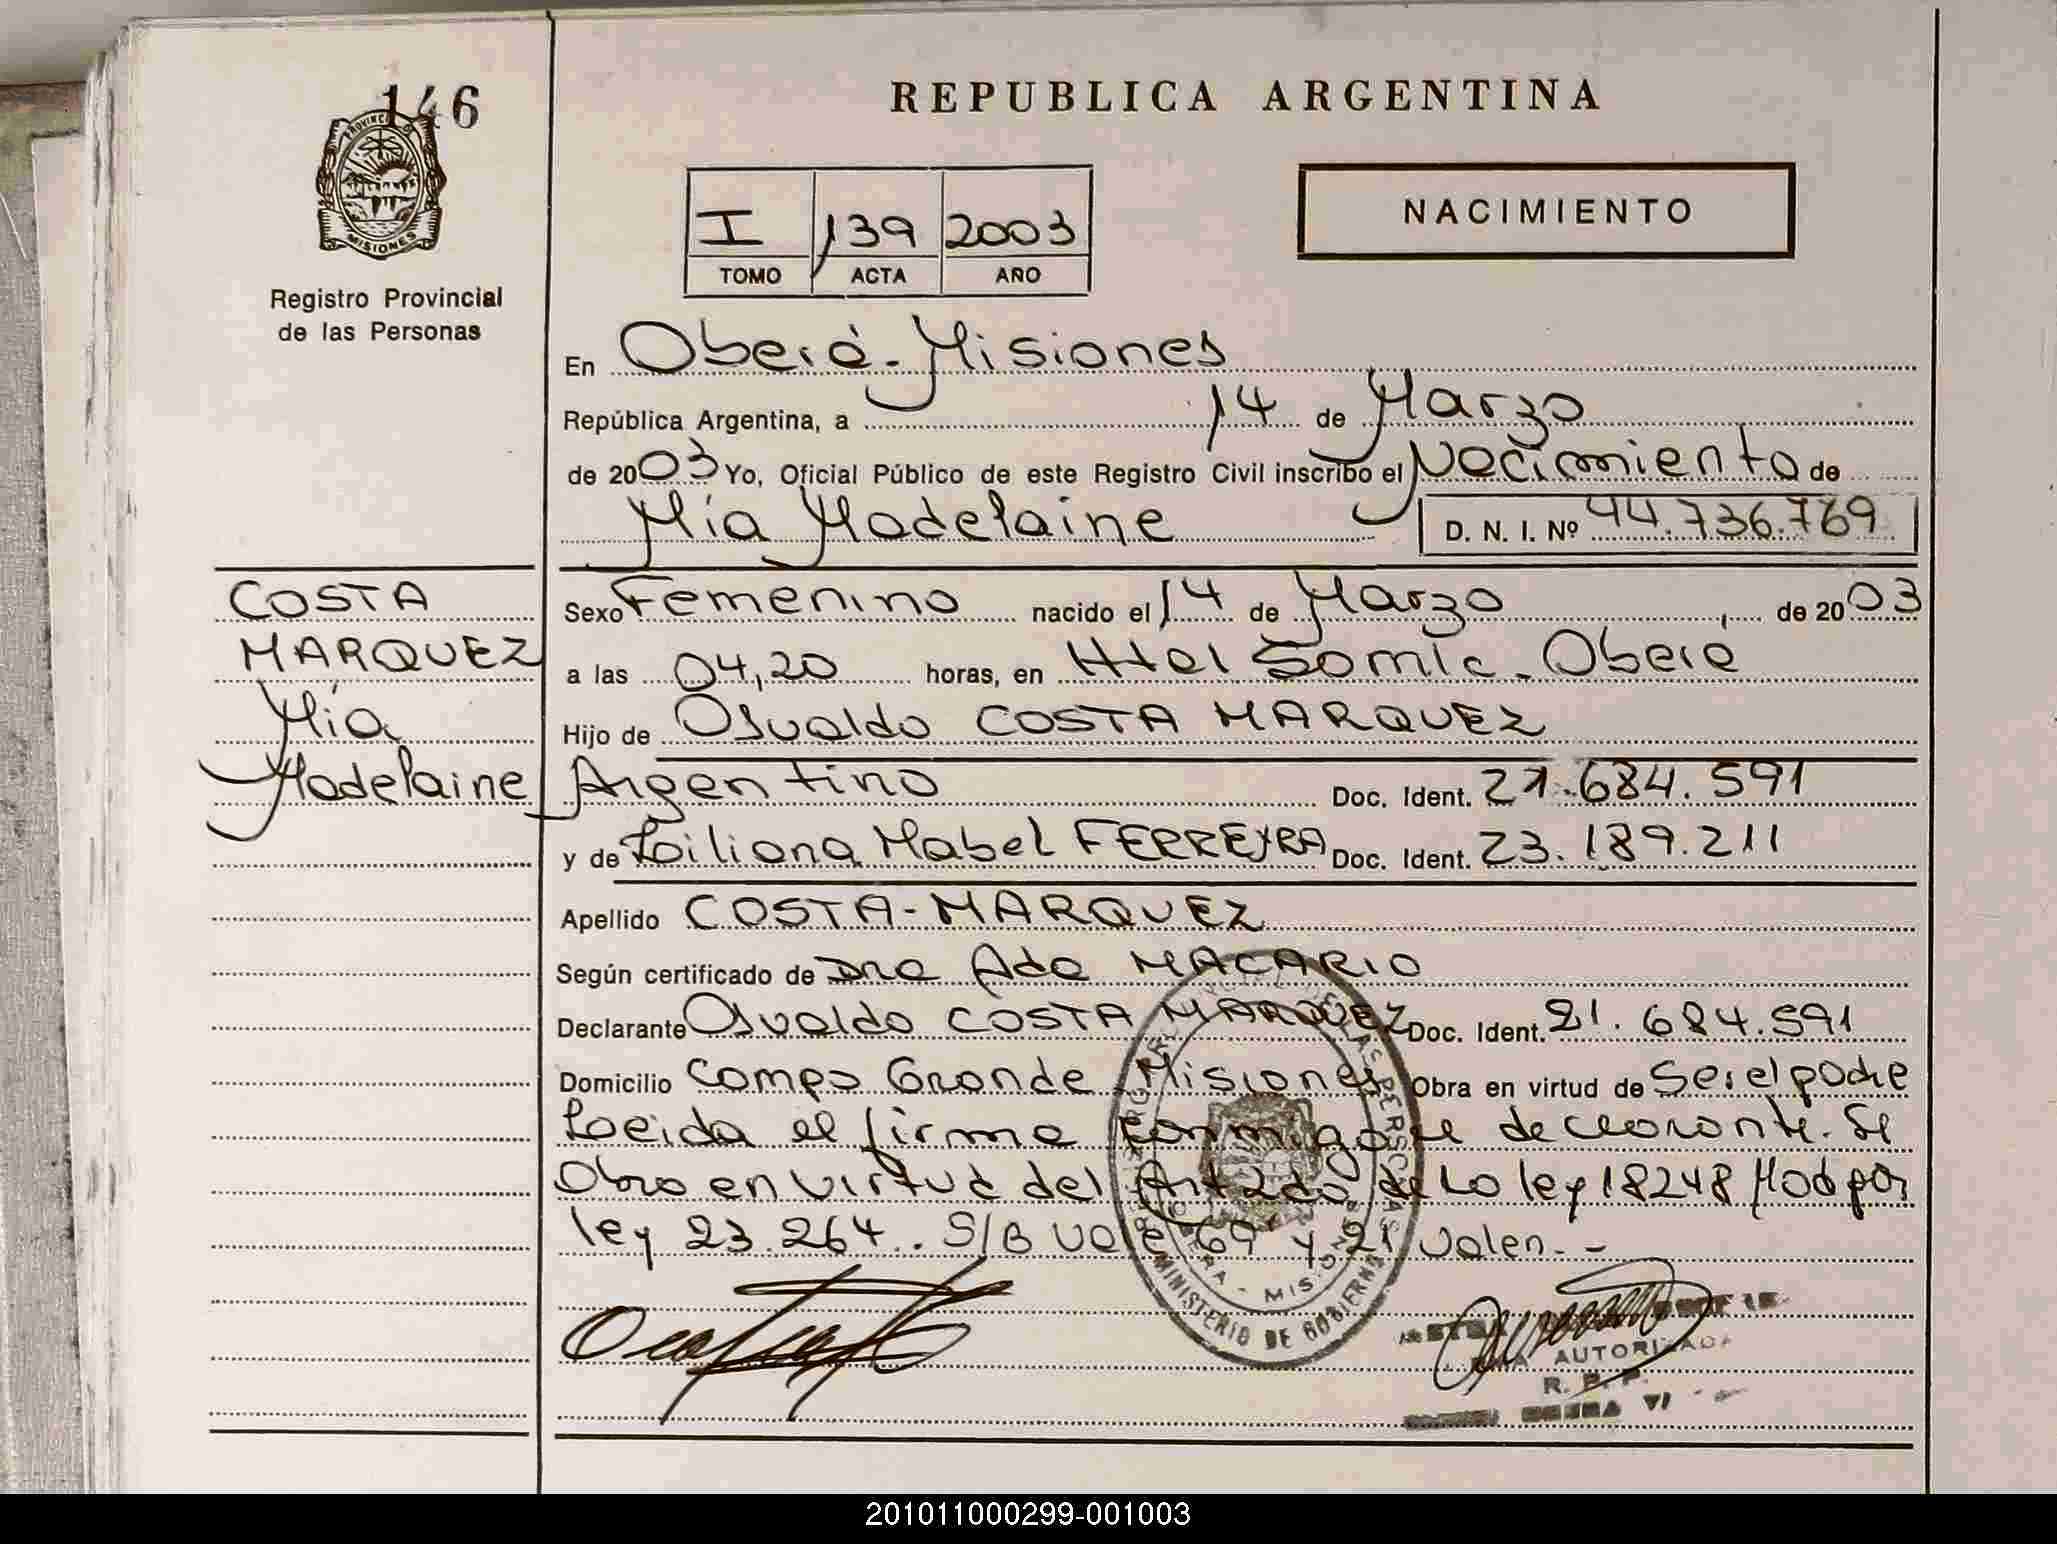 146
PROVINCIA DE
MISIONES
Registro Provincial
de las Personas
REPUBLICA ARGENTINA
I 139 2003
TOMO ACTA AÑO
NACIMIENTO
En Oberá-Misiones
República Argentina, a 14 de Marzo
de 2003 Yo, Oficial Público de este Registro Civil inscribo el Nacimiento de
Mía Madelaine D. N. I. Nº 44.736.769
COSTA
MARQUEZ
Mía
Madelaine
Sexo Femenino nacido el 14 de Marzo, de 2003
a las 04,20 horas, en Htal Samic - Oberá
Hijo de Osvaldo COSTA MARQUEZ
Argentino Doc. Ident. 21.684.591
y de Liliana Mabel FERREYRA Doc. Ident. 23.189.211
Apellido COSTA-MARQUEZ
Según certificado de Dra Ada MACARIO
Declarante Osvaldo COSTA MARQUEZ Doc. Ident. 21.684.591
Domicilio Campo Grande Misiones Obra en virtud de Ser el padre
Leida el firma conmigo el declarante. Se
Obra en virtud del Art de La ley 18248 Mod por
ley 23.264.. S/B vale 69 y 21 valen. -
MINISTERIO DE GOBIERNO
AUTORIZADA
201011000299-001003